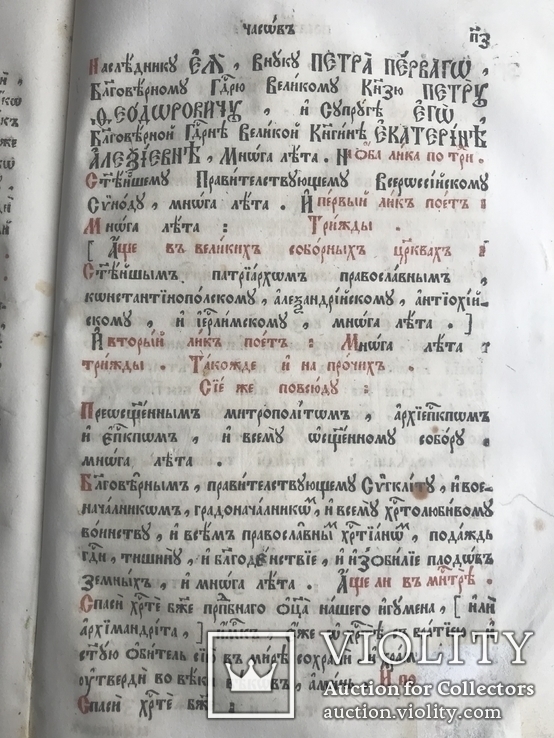 часѡ́въ
п҃з
Наслѣ́днику Еѧ̀, внꙋ́ку ПЕТРА̀ ПЕ́РВАГѠ,
Бл҃говѣ́рному Гд҃рю Вели́кому Кн҃зю ПЕТРꙊ̀
Ѳ̈ЕОДѠРОВИЧꙊ, и҆ Супрꙋ́гѣ Е҆ГѠ̀,
Бл҃говѣ́рной Гд҃рнѣ Вели́кой Кн҃ги́нѣ Е҆КАТЕРІ́НѢ
А҆ЛЕѮІ́ЕВНѢ, Мнѡ́га лѣ́та. И҆ ѻ҆́ба ли́ка по три̑.
Ст҃ѣ́йшему Прави́телствующему Всерѡссі́йскому
Сѵно́ду, мнѡ́га лѣ́та. И҆ пе́рвый ли́къ пое́тъ:
Мнѡ́га лѣ́та: Три́жды.
[ А҆́ще въ вели́кихъ собо́рныхъ цр҃квахъ:
Ст҃ѣ́йшымъ патрїа́рхѡмъ правосла́внымъ,
кѡнстантїнопо́лскому, а҆леѯандрі́йскому, а҆нтїохі́й-
скому, и҆ і҆ер҇ли́мскому, мнѡ́га лѣ́та. ]
И҆ вторы́й ли́къ пое́тъ: Мнѡ́га лѣ́та
три́жды. Та́кожде и҆ на про́чихъ.
Сїе́ же повсю́ду:
Прешс҃ще́ннымъ митрополі́тѡмъ, а҆рхїеп҇кпѡмъ
и҆ е҆п҇кпѡмъ, и҆ всемꙋ̀ ѡ҆сщ҃е́нному собо́ру.
мнѡ́га лѣ́та.
Бл҃говѣ́рнымъ, прави́телствующему Сѵгклі́ту, и҆ вое-
нача́лникѡмъ, градонача́лникѡⷨ, и҆ всемꙋ̀ хр҇толюби́вому
во́инству, и҆ всѣ́мъ правосла́внымъ хр҇тїа́нѡⷨ, пода́ждь
гд҇и, тишинꙋ̀, и҆ благоде́нствїе, и҆ и҆зоби́лїе плодѡ́въ
земны́хъ, и҆ мнѡ́га лѣ́та. А҆́ще ли въ мн҇трѣ̀.
Спасѝ хр҇тѐ бж҃е прп҇бнаго ѻ҆ц҃а̀ на́шего и҆гу́мена, [ и҆лѝ
а҆рхїмандрі́та, ]
ѻ҆би́тель сїю̀ въ ми́рѣ сохранѝ
ᲂу҆твердѝ во вѣ́ки
Спасѝ хр҇тѐ бж҃е:
VIOLITY
Auction for Collectors
auction.violity.com